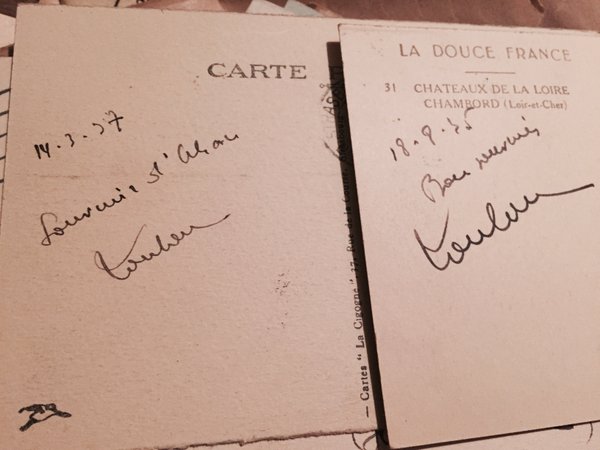 CARTE
14.3.37
Souvenir d'Alsace
— Cartes " La Cigogne " 37, Rue de la
LA DOUCE FRANCE
31 CHATEAUX DE LA LOIRE
CHAMBORD (Loir-et-Cher)
18.8.35
Bon souvenir